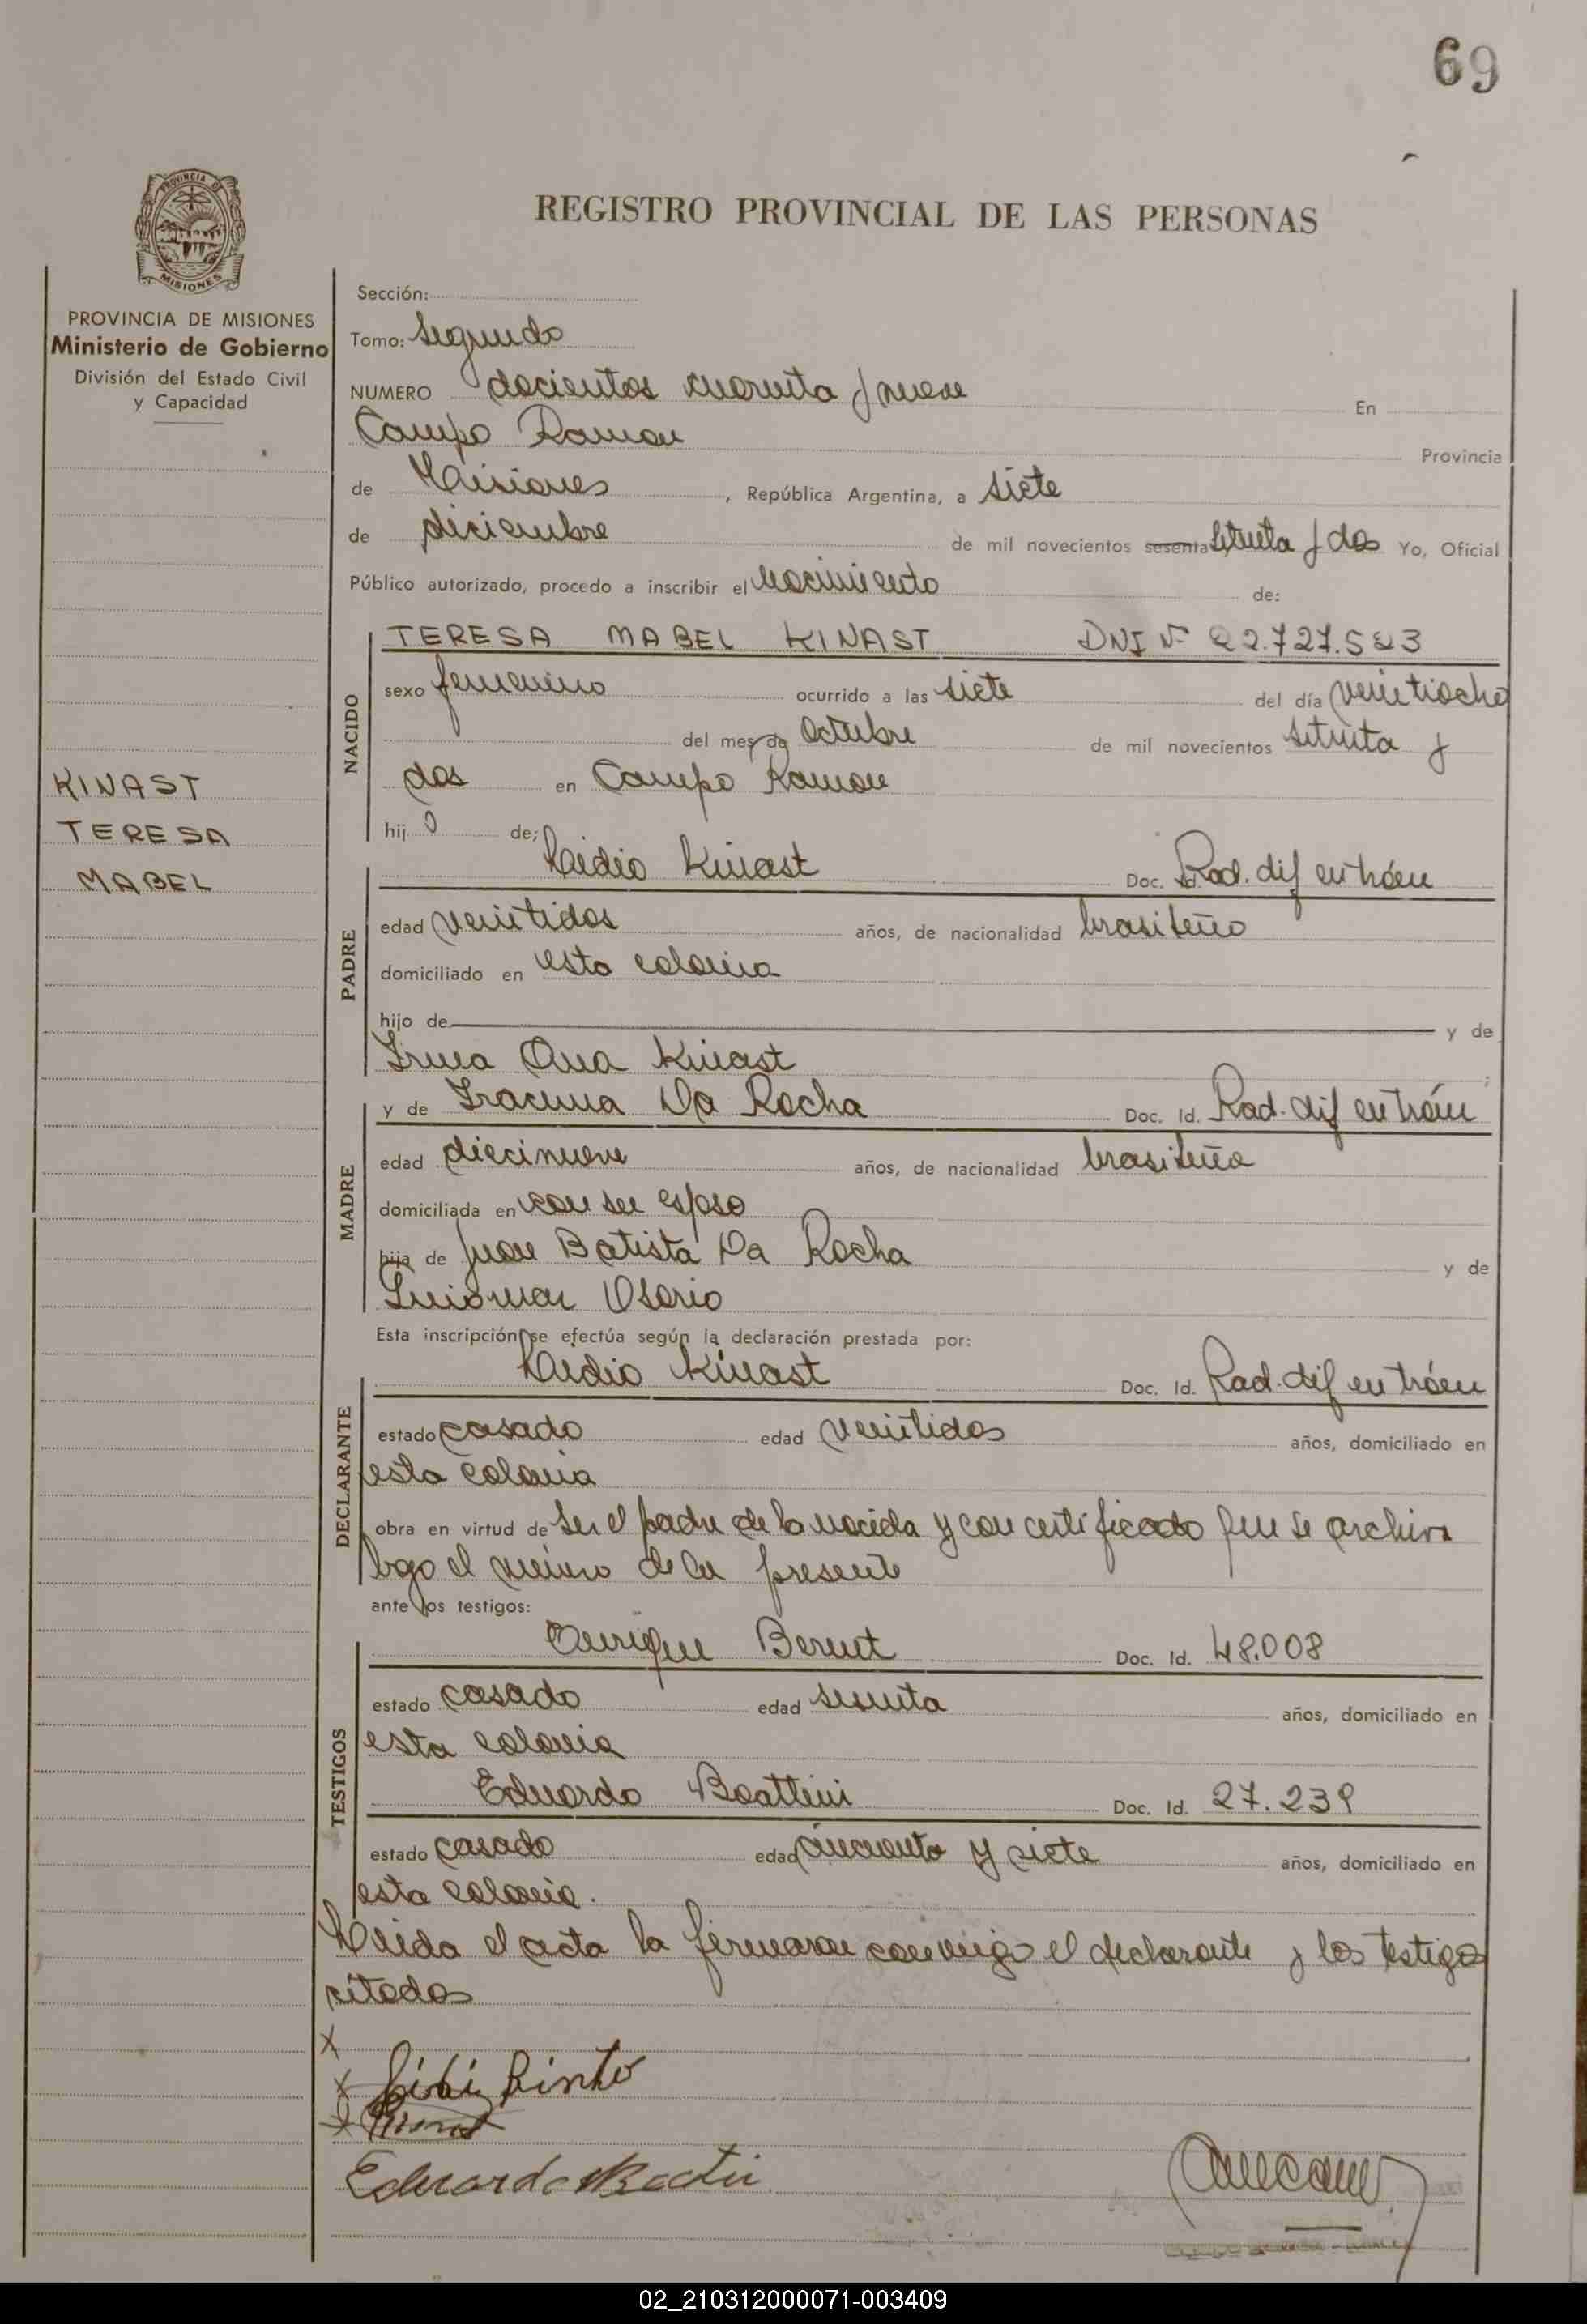 69
PROVINCIA DE
MISIONES
REGISTRO PROVINCIAL DE LAS PERSONAS
PROVINCIA DE MISIONES
Ministerio de Gobierno
División del Estado Civil
y Capacidad
KINAST
TERESA
MABEL
Sección:
Tomo: Segundo
NUMERO docientos cuarenta y nueve En
Campo Ramon Provincia
de Misiones, República Argentina, a siete
de diciembre de mil novecientos sesenta setenta y dos Yo, Oficial
Público autorizado, procedo a inscribir el Nacimiento de:
NACIDO
TERESA MABEL KINAST DNI Nº 22.727.523
sexo femenino ocurrido a las siete del día veintiocho
del mes de Octubre de mil novecientos setenta y
dos en Campo Ramon
hij de;
PADRE
Lidio Kinast Doc. Id. Rad. dif en trám
edad veintidos años, de nacionalidad brasileño
domiciliado en esta colonia
hijo de y de
Irma Ana Kinast
MADRE
y de Iracema Da Rocha Doc. Id. Rad. dif en trám
edad diecinueve años, de nacionalidad brasileña
domiciliada en con su esposo
hija de Juan Batista Da Rocha y de
Osorio
Esta inscripción se efectúa según la declaración prestada por:
DECLARANTE
Lidio Kinast Doc. Id. Rad. dif en trám
estado casado edad veintidos años, domiciliado en
esta colonia
obra en virtud de ser el padre de la nacida y con certificado que se archiva
bajo el número de la presente
ante los testigos:
TESTIGOS
Enrique Bernt Doc. Id. 48.008
estado casado edad años, domiciliado en
esta colonia
Eduardo Beattini Doc. Id. 27.239
estado casado edad y siete años, domiciliado en
esta colonia.
Leida el acta la firmaron conmigo el declarante y los testigos
citados
X
X
X
Eduardo
02_210312000071-003409